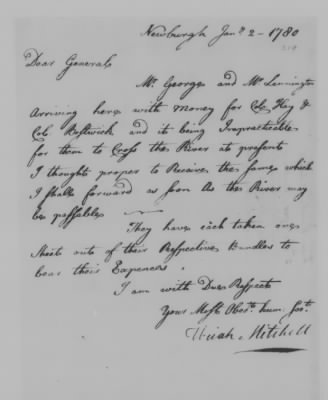 Newburgh Jany 2 - 1780
Dear General
Mr. George and Mr. Lennington
Arriving here with Money for Colo. Hay &
Colo. Bostwick and it being Impracticable
for them to Cross the River at present
I thought proper to Receive the same which
I shall forward as soon As the River may
be passable
They have each taken one
Sheet out of their Respective Bundles to
bear their Expences.
I am with Due Respect
Your Most Obedt. hum. Sert.
Uriah Mitchell